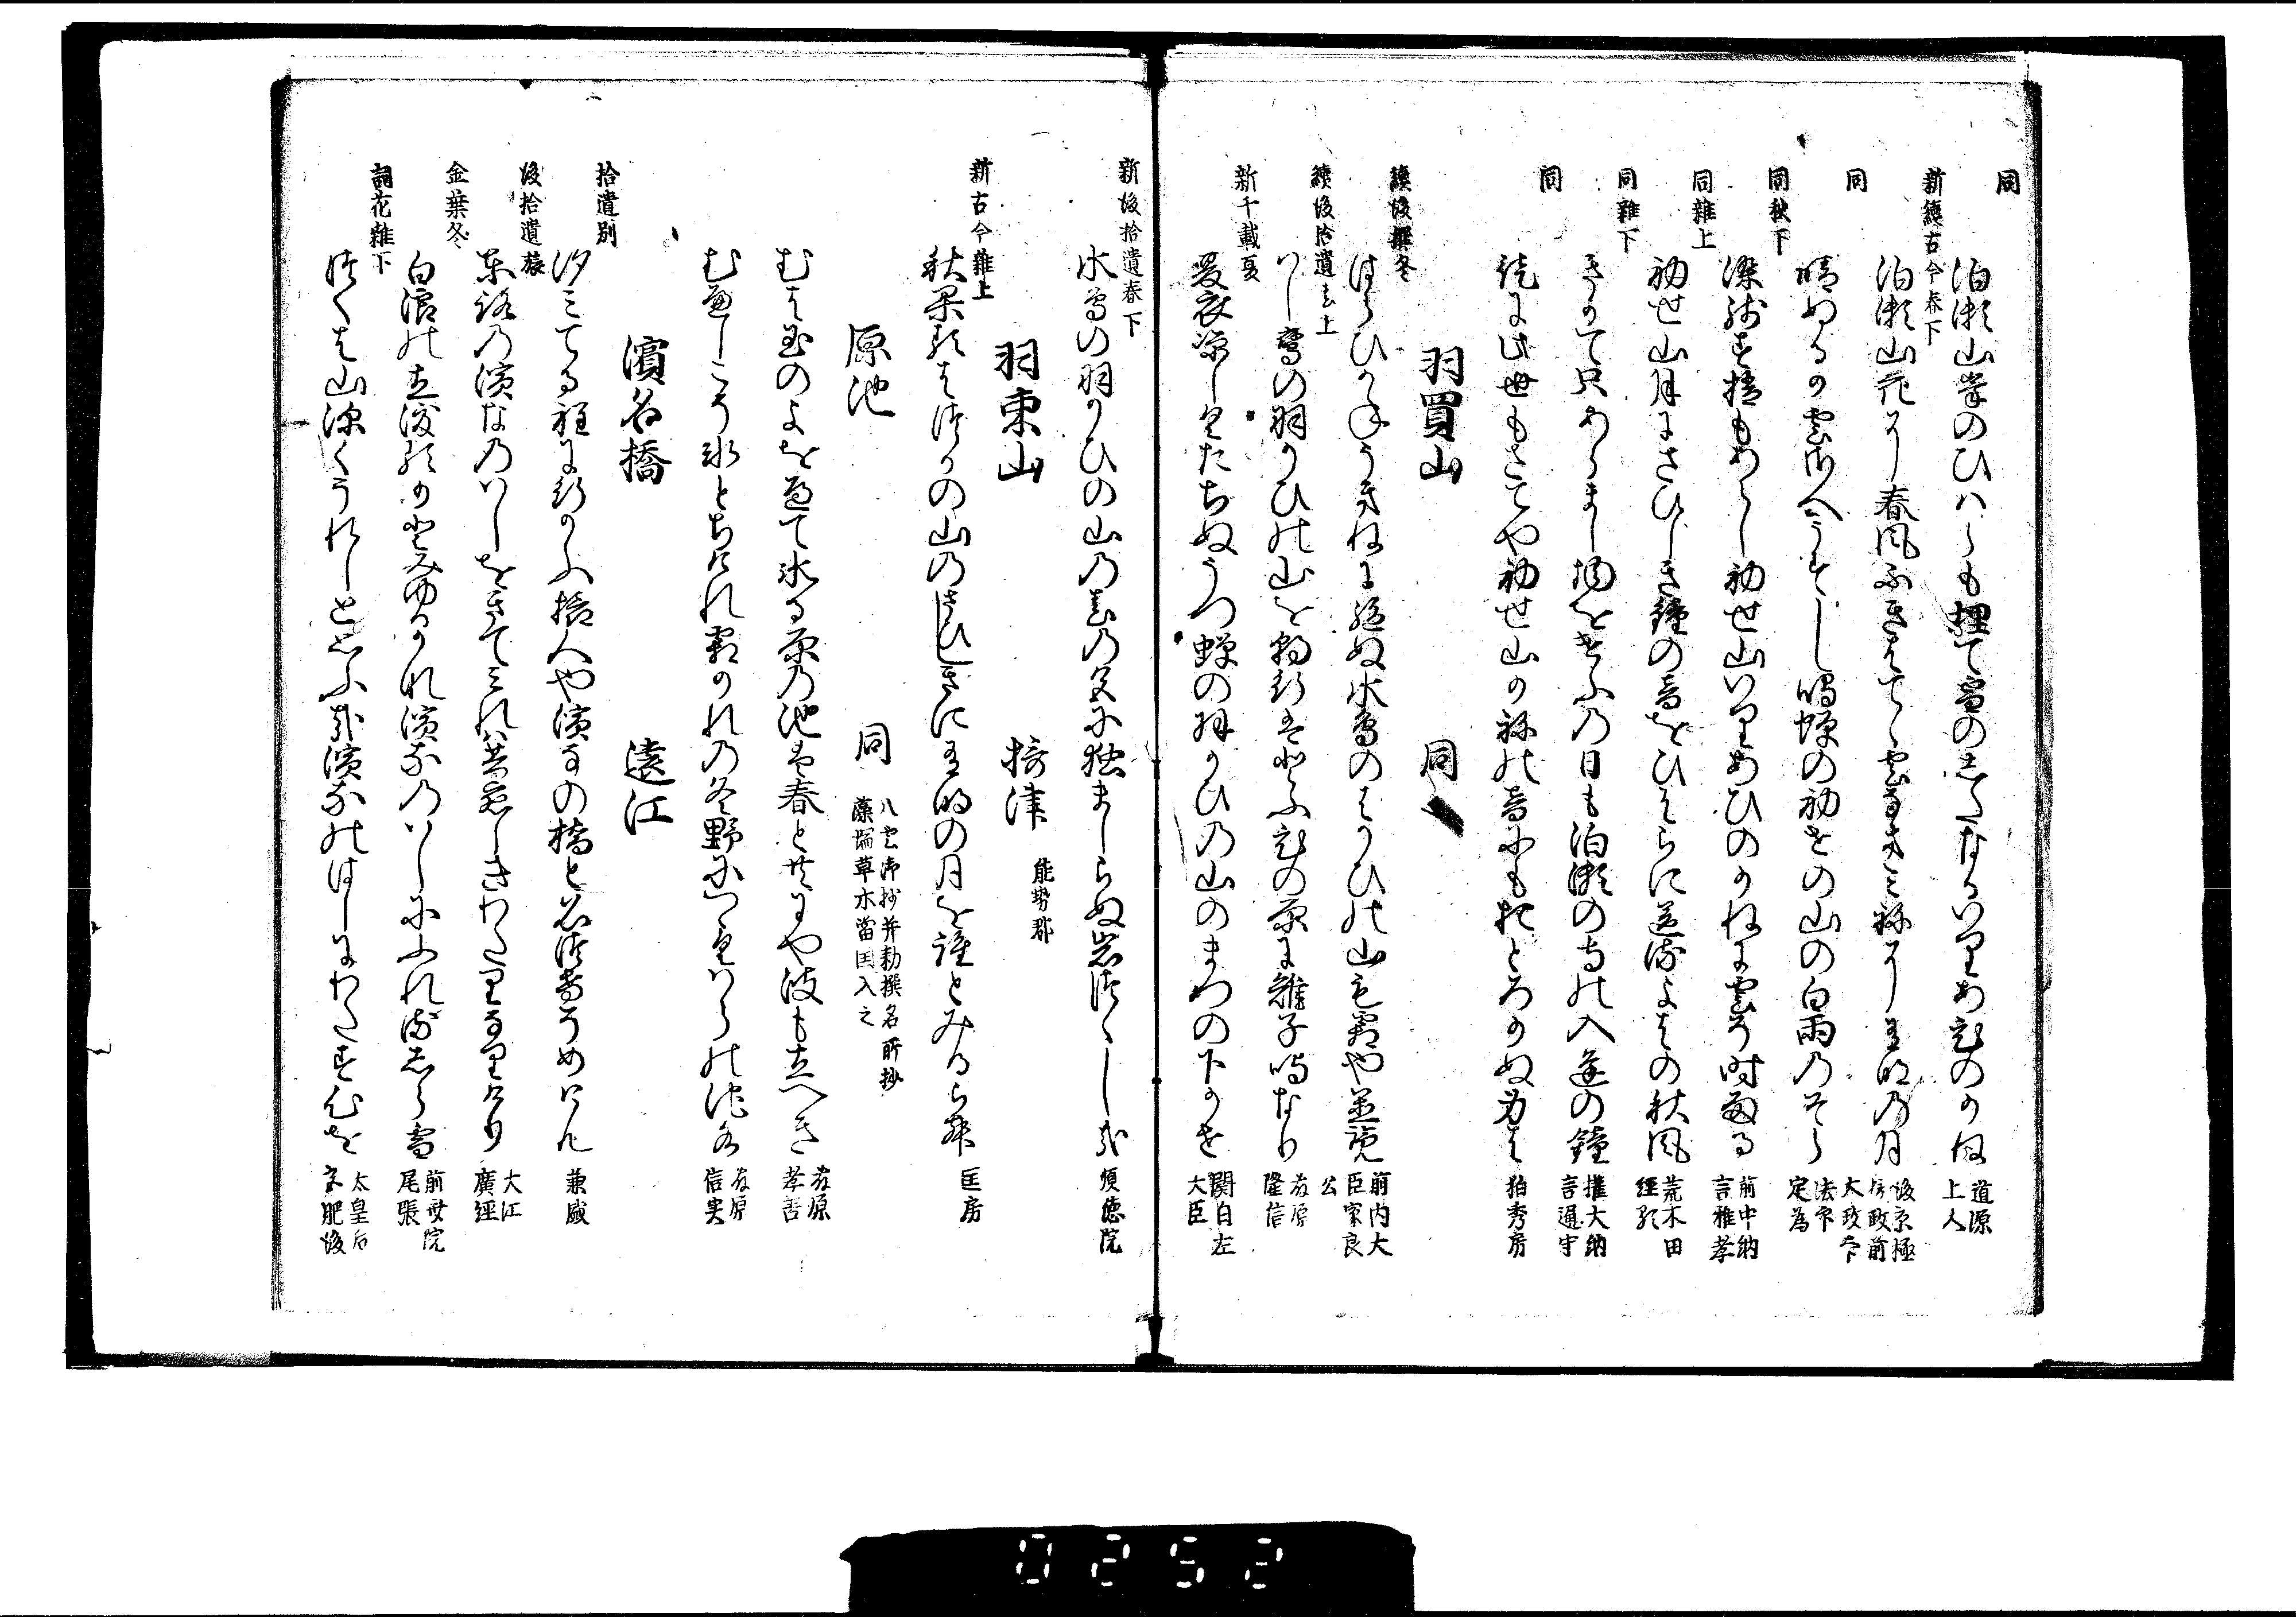 同
泊瀬山峯のひはらも埋て雪のしたなるいりあひのかね 道源上人
新続古今春下
泊瀬山花に春風ふきはてゝ雲なきみねに有明の月 後京極摂政前太政大臣
同
晴ぬるか雲さへうすし鳴蝉の初せの山の白雨のそら 法印定為
同秋下
染残す梢もあらし初せ山いりあひのかねに雲そ時雨る 前中納言雅孝
同雑上
初せ山月にさひしき鐘の音をひはらに送るよはの秋風 荒木田経顕
同雑下
きかて只あらまし物をけふの日も泊瀬の寺の入逢の鐘 権大納言通守
同
後に此世もさてや初せ山のみねの音にもおとろかぬ身は 祐秀房
羽買山 同
続後撰冬
はらひかねうきねに絶ぬ水鳥のはかひの山も霜や置覧 前内大臣家良公
続後拾遺春上
いし鸞の羽かひの山を朝行はかふひの原に雉子鳴なり 藤原隆信
新千載夏
夏衣凉しくたちぬうつ蝉の羽かひの山のまつの下かせ 関白左大臣
新後拾遺春下
水鳥の羽かひの山の春の色に独ましらぬ岩つゝし哉 順徳院
羽束山 摂津 能勢郡
新古今雑上
秋果るはつかの山のさひしきに有明の月を誰とみるらん 匡房
原池 同 八雲御抄并勅撰名所抄藻塩草木當国入之
むは玉のよを通て氷る原の池は春と共にや波も立へき 藤原孝善
むすしこそ氷とちけれ霜かれの冬野につゝくはらの池水 藤原信実
濱名橋 遠江
拾遺別
汐みてる程に行かふ旅人や濱なの橋と名つけそめけん 兼盛
後拾遺旅
東路の濱なのはしをきてみれは昔恋しきわたりなりけり 大江廣経
金葉冬
白浪の立渡るかとみゆるかな濱なのはしにふれるしら雪 前斎院尾張
詞花雑下
つくは山深くうれしと思ふ哉濱なのはしにわたすこゝろを 太皇后宮肥後
0252